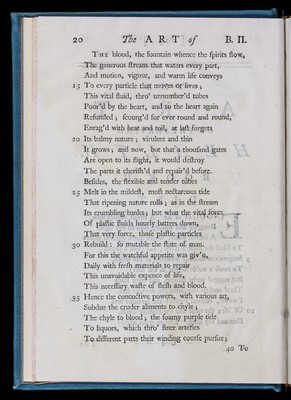 20 The ART of B. II.
THE blood, the fountain whence the ſpirits flow,
The generous ſtream that waters every part,
And motion, vigour, and warm life conveys
15 To every particle that moves or lives;
This vital fluid, thro' unnumber'd tubes
Pour'd by the heart, and to the heart again
Refunded; ſcourg'd for ever round and round,
Enrag'd with heat and toil, at laſt forgets
20 Its balmy nature; virulent and thin
It grows; and now, but that a thouſand gates
Are open to its flight, it would deſtroy
The parts it cheriſh'd and repair'd before.
Beſides, the flexible and tender tubes
25 Melt in the mildeſt, moſt nectareous tide
That ripening nature rolls; as in the ſtream
Its crumbling banks; but what the vital force
Of plaſtic fluids hourly batters down,
That very force, thoſe plaſtic particles
30 Rebuild: ſo mutable the ſtate of man.
For this the watchful appetite was giv'n,
Daily with freſh materials to repair
This unavoidable expence of life,
This neceſſary waſte of fleſh and blood.
35 Hence the concoctive powers, with various art,
Subdue the cruder aliments to chyle;
The chyle to blood; the foamy purple tide
To liquors, which thro' finer arteries
To different parts their winding courſe purſue;
40 To